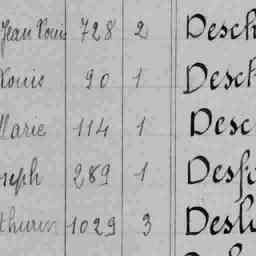 Jean Louis 728 2 Desch
Louis 90 1 Desch
Marie 114 1 Desc
oseph 289 1 Desf
thurin 1029 3 Desl